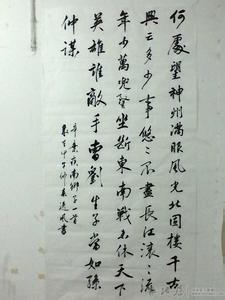 何處望神州滿眼風光北固樓千古
興亡多少事悠〻不盡長江滾〻流
年少萬兜鍪坐斷東南戰未休天下
英雄誰敵手曹劉生子當如孫
仲謀
辛棄疾南鄉子一首